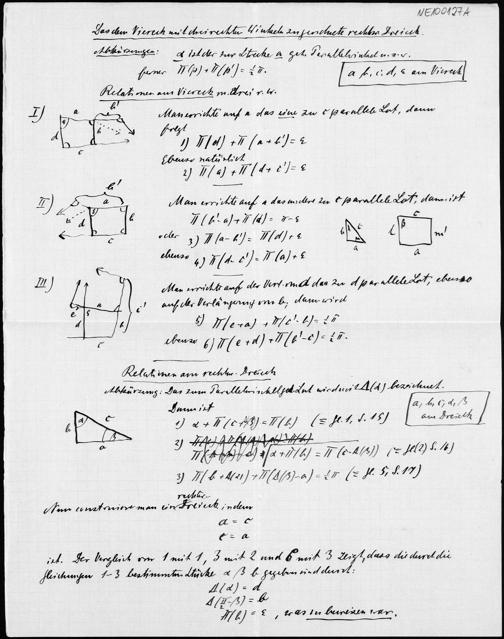 NE100127A
Das dem Viereck mit drei rechten Winkeln zugeordnete rechtw. Dreieck.
Abkürzungen: α ist der zur Strecke a geh. Parallelwinkel u.s.w.
ferner Π(p) + Π(p') = ½π.
a, b, c, d, ε am Viereck
Relationen am Viereck m. drei r. w.
I)
Man errichte auf a das eine zu c parallele Lot, dann
folgt
1) Π(d) + Π(a+b') = ε
Ebenso natürlich
2) Π(a) + Π(d+c') = ε
II)
Man errichte auf a das andere zu c parallele Lot, dann ist
Π(b'-a) + Π(d) = π-ε
oder 3) Π(a-b') = Π(d) + ε
ebenso 4) Π(d-c') = Π(a) + ε
III)
Man errichte auf der Verl. von d das zu d parallele Lot, ebenso
auf der Verlängerung von b, dann wird
5) Π(e+a) + Π(c'-b) = ½π
ebenso 6) Π(e+d) + Π(b'-c) = ½π.
Relationen am rechtw. Dreieck
Abkürzung: Das zum Parallelwinkel α geh. Lot wird mit Δ(α) bezeichnet.
a, b, c, α, β
am Dreieck
Dann ist
1) α + Π(c+β) = Π(b) (= gl. 1, S. 15)
2) α + Π(b) = Π(c-Δ(β)) (= gl(2) S. 16)
3) Π(b+Δ(α)) + Π(Δ(β)-a) = ½π (= gl. 5, S. 17)
Nun construiere man ein rechtw. Dreieck, indem
a = c
c = a
ist. Der Vergleich von 1 mit 1, 3 mit 2 und 6 mit 3 zeigt, dass die durch die
Gleichungen 1-3 bestimmten Stücke α β b gegeben sind durch:
Δ(α) = d
Δ(π/2-β) = b
Π(b) = ε, was zu beweisen war.